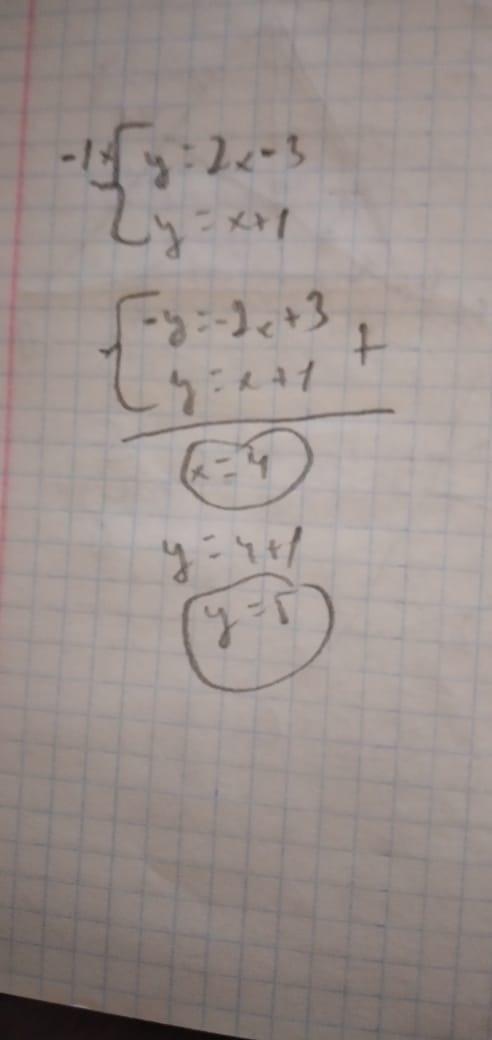 -1× { y = 2x - 3
y = x + 1
{ -y = -2x + 3
y = x + 1 +
x = 4
y = 4 + 1
y = 5